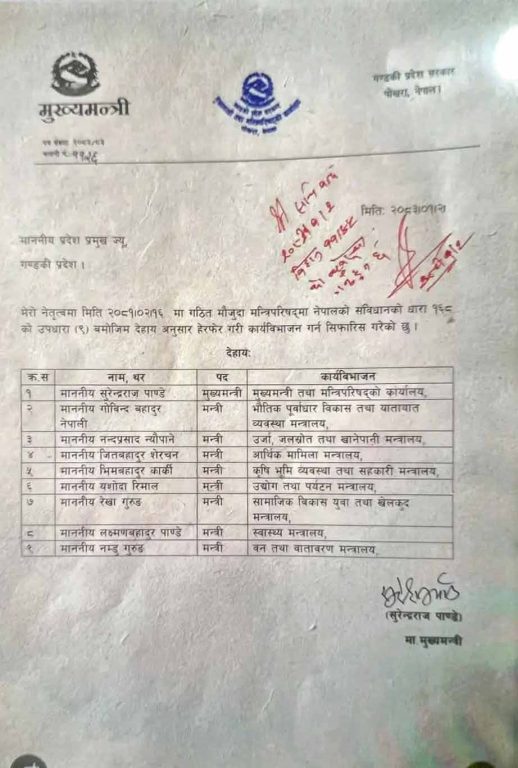 मुख्यमन्त्री
गण्डकी प्रदेश सरकार
पोखरा, नेपाल।
मिति: २०८३/०१/२
माननीय प्रदेश प्रमुख ज्यू,
गण्डकी प्रदेश।
मेरो नेतृत्वमा मिति २०८१/०२/१६ मा गठित मौजुदा मन्त्रिपरिषद्मा नेपालको संविधानको धारा १६८
को उपधारा (९) बमोजिम देहाय अनुसार हेरफेर गरी कार्यविभाजन गर्न सिफारिस गरेको छु।
देहाय:
क्र.स नाम, थर पद कार्यविभाजन
१ माननीय सुरेन्द्रराज पाण्डे मुख्यमन्त्री मुख्यमन्त्री तथा मन्त्रिपरिषद्को कार्यालय,
२ माननीय गोविन्द बहादुर नेपाली मन्त्री भौतिक पूर्वाधार विकास तथा यातायात
व्यवस्था मन्त्रालय,
३ माननीय नन्दप्रसाद न्यौपाने मन्त्री उर्जा, जलस्रोत तथा खानेपानी मन्त्रालय,
४ माननीय जितबहादुर शेरचन मन्त्री आर्थिक मामिला मन्त्रालय,
५ माननीय भिमबहादुर कार्की मन्त्री कृषि भूमि व्यवस्था तथा सहकारी मन्त्रालय,
६ माननीय यशोदा रिमाल मन्त्री उद्योग तथा पर्यटन मन्त्रालय,
७ माननीय रेखा गुरुङ मन्त्री सामाजिक विकास युवा तथा खेलकुद
मन्त्रालय,
८ माननीय लक्ष्मणबहादुर पाण्डे मन्त्री स्वास्थ्य मन्त्रालय,
९ माननीय नम्डु गुरुङ मन्त्री वन तथा वातावरण मन्त्रालय,
(सुरेन्द्रराज पाण्डे)
मा.मुख्यमन्त्री